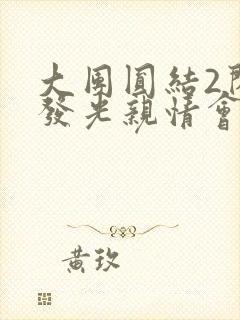 大團圓結2
發光親情會
黃玫